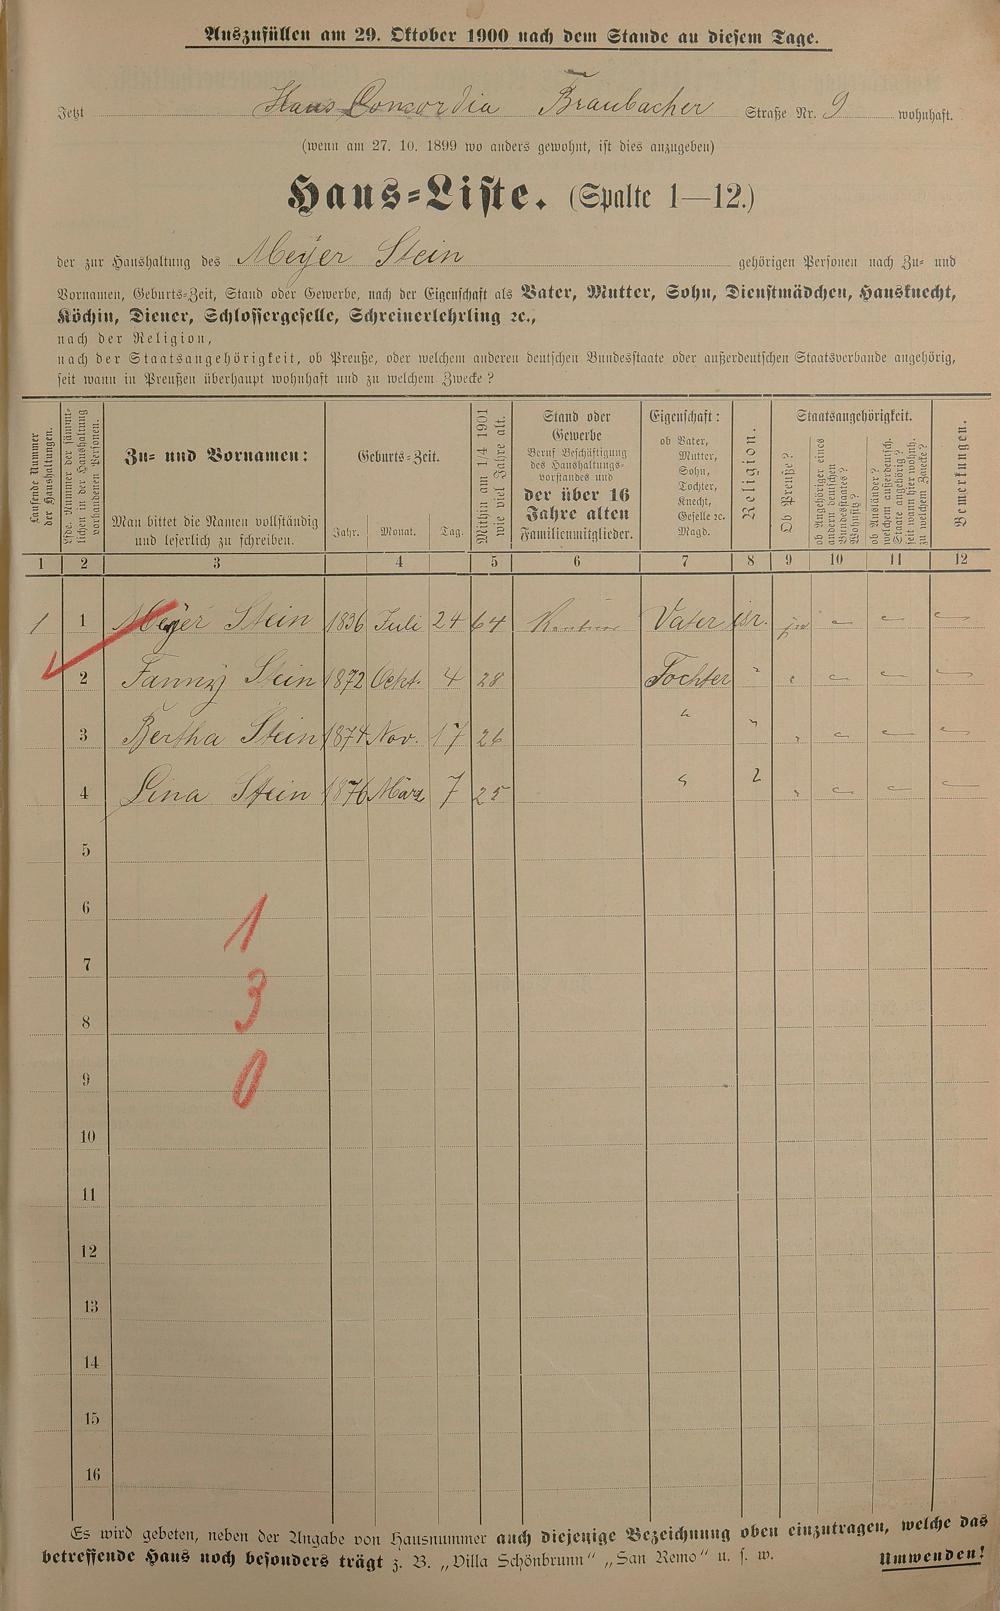 Auszufüllen am 29. Oktober 1900 nach dem Stande an diesem Tage.
Jetzt Haus Concordia Braubacher Straße Nr. 9 wohnhaft.
(wenn am 27. 10. 1899 wo anders gewohnt, ist dies anzugeben)
Haus-Liste. (Spalte 1—12.)
der zur Haushaltung des Meyer Stein gehörigen Personen nach Zu- und
Vornamen, Geburts-Zeit, Stand oder Gewerbe, nach der Eigenschaft als Vater, Mutter, Sohn, Dienstmädchen, Hausknecht,
Köchin, Diener, Schlossergeselle, Schreinerlehrling ꝛc.,
nach der Religion,
nach der Staatsangehörigkeit, ob Preuße, oder welchem anderen deutschen Bundesstaate oder außerdeutschen Staatsverbande angehörig,
seit wann in Preußen überhaupt wohnhaft und zu welchem Zwecke?
Laufende Nummer
der Haushaltungen.
lfde. Nummer der sämmt-
lichen in der Haushaltung
vorhandenen Personen.
Zu- und Vornamen:
Man bittet die Namen vollständig
und leserlich zu schreiben.
Geburts-Zeit.
Jahr. Monat. Tag.
Mithin am 1/4 1901
wie viel Jahre alt.
Stand oder
Gewerbe
Beruf Beschäftigung
des Haushaltungs-
vorstandes und
der über 16
Jahre alten
Familienmitglieder.
Eigenschaft:
ob Vater,
Mutter,
Sohn,
Tochter,
Knecht,
Geselle ꝛc.
Magd.
Religion.
Staatsangehörigkeit.
Ob Preuße?
ob Angehöriger eines
andern deutschen
Bundesstaates?
Wohnsitz?
ob Ausländer?
welchem außerdeutsch.
Staate angehörig?
seit wann hier wohnh.
zu welchem Zwecke?
Bemerkungen.
1 2 3 4 5 6 7 8 9 10 11 12
1 1 Meyer Stein 1836 Juli 24 64 Vater isr. ja — — —
2 Fanny Stein 1872 Ockt. 4 28 Tochter " " — — —
3 Bertha Stein 1874 Nov. 17 26 " " " — — —
4 Lina Stein 1876 März 7 25 " " " — — —
5
6
1
7
3
8
9
0
10
11
12
13
14
15
16
Es wird gebeten, neben der Angabe von Hausnummer auch diejenige Bezeichnung oben einzutragen, welche das
betreffende Haus noch besonders trägt z. B. „Villa Schönbrunn“ „San Remo“ u. s. w. Umwenden!